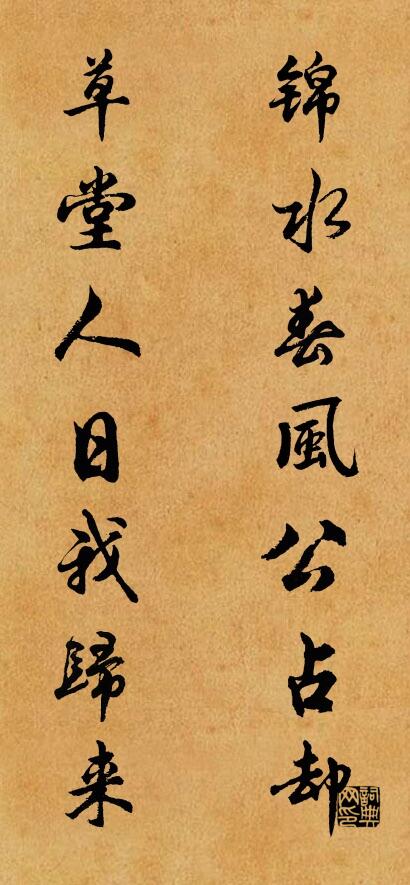 锦水春風公占却
草堂人日我歸来
詞典网印